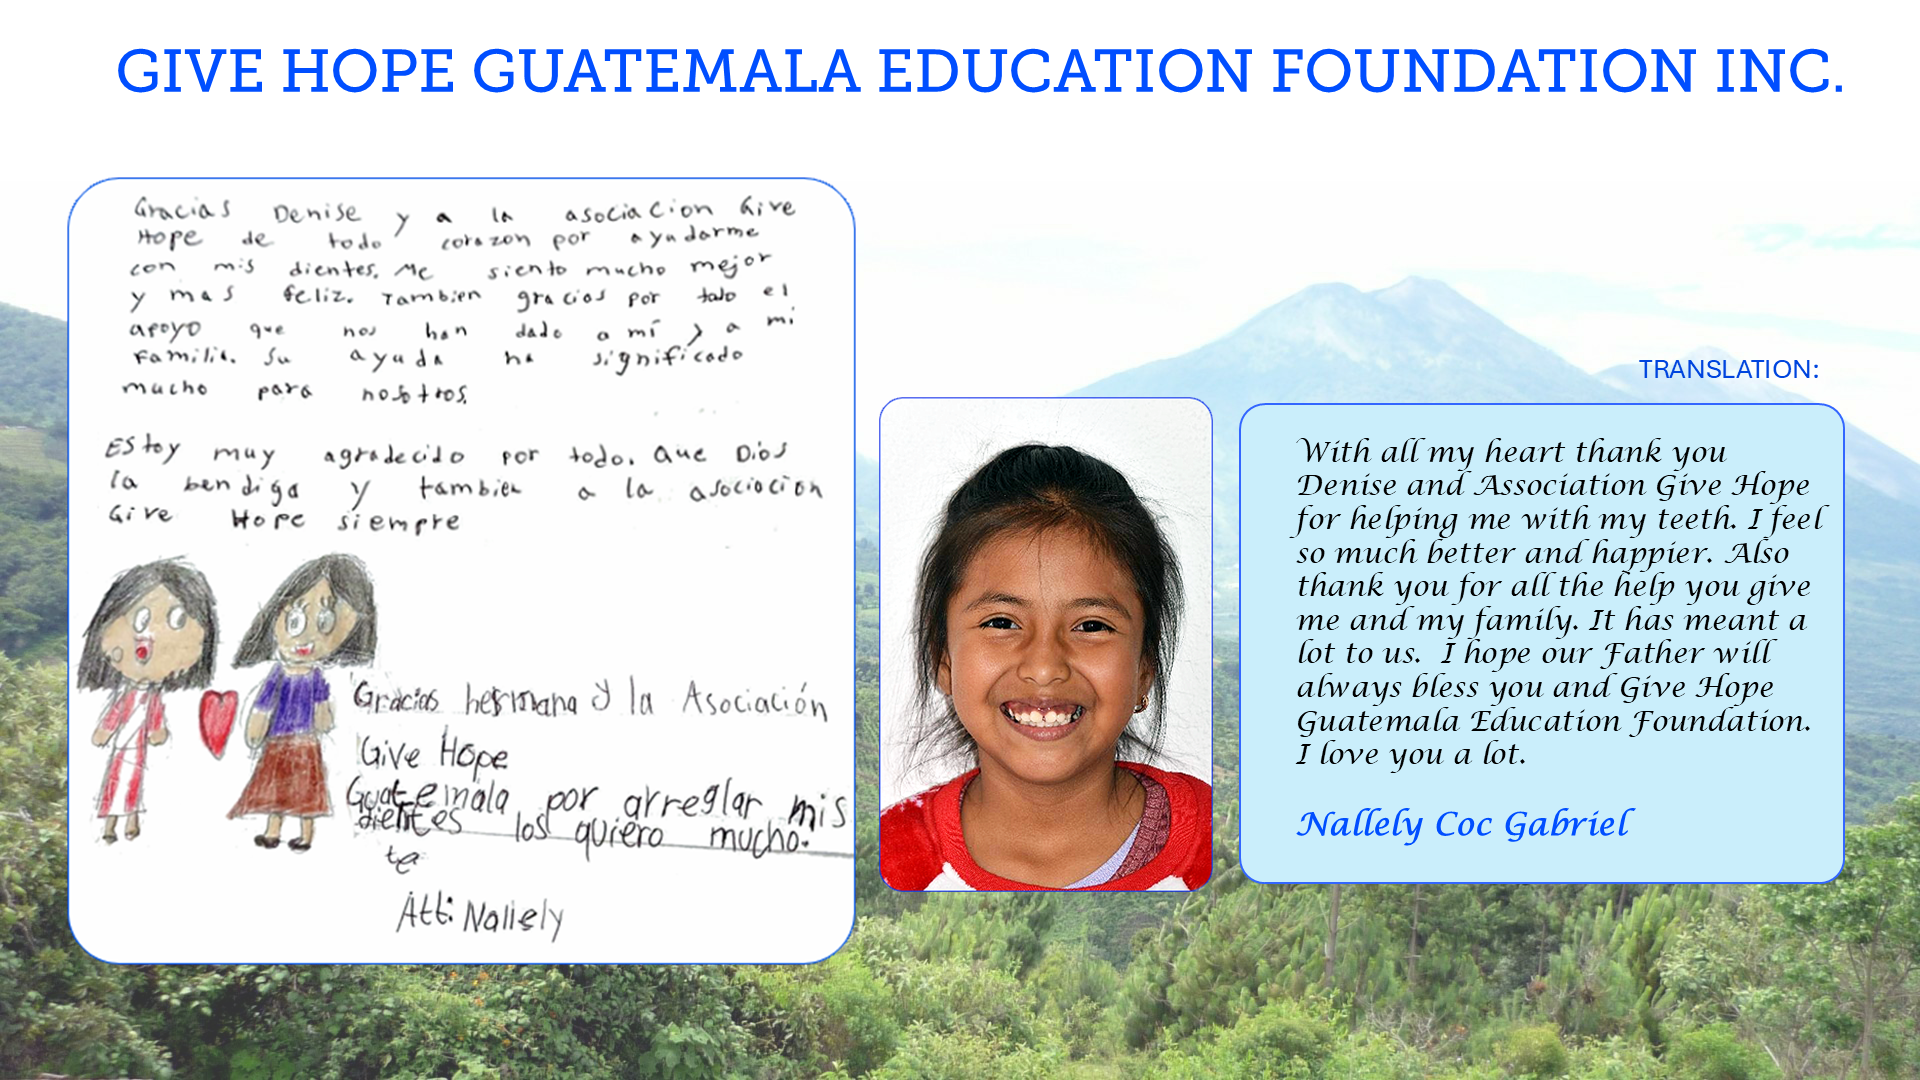 GIVE HOPE GUATEMALA EDUCATION FOUNDATION INC.
Gracias Denise y a la asociacion Give
Hope de todo corazon por ayudarme
con mis dientes. Me siento mucho mejor
y mas feliz. Tambien gracias por todo el
apoyo que nos han dado a mí y a mi
familia. Su ayuda ha significado
mucho para nosotros.
Estoy muy agradecido por todo. Que Dios
la bendiga y tambien a la asociacion
Give Hope siempre
Gracias hermana y la Asociación
Give Hope
Guatemala por arreglar mis
dientes los quiero mucho.
te
Att: Nallely
TRANSLATION:
With all my heart thank you
Denise and Association Give Hope
for helping me with my teeth. I feel
so much better and happier. Also
thank you for all the help you give
me and my family. It has meant a
lot to us. I hope our Father will
always bless you and Give Hope
Guatemala Education Foundation.
I love you a lot.
Nallely Coc Gabriel